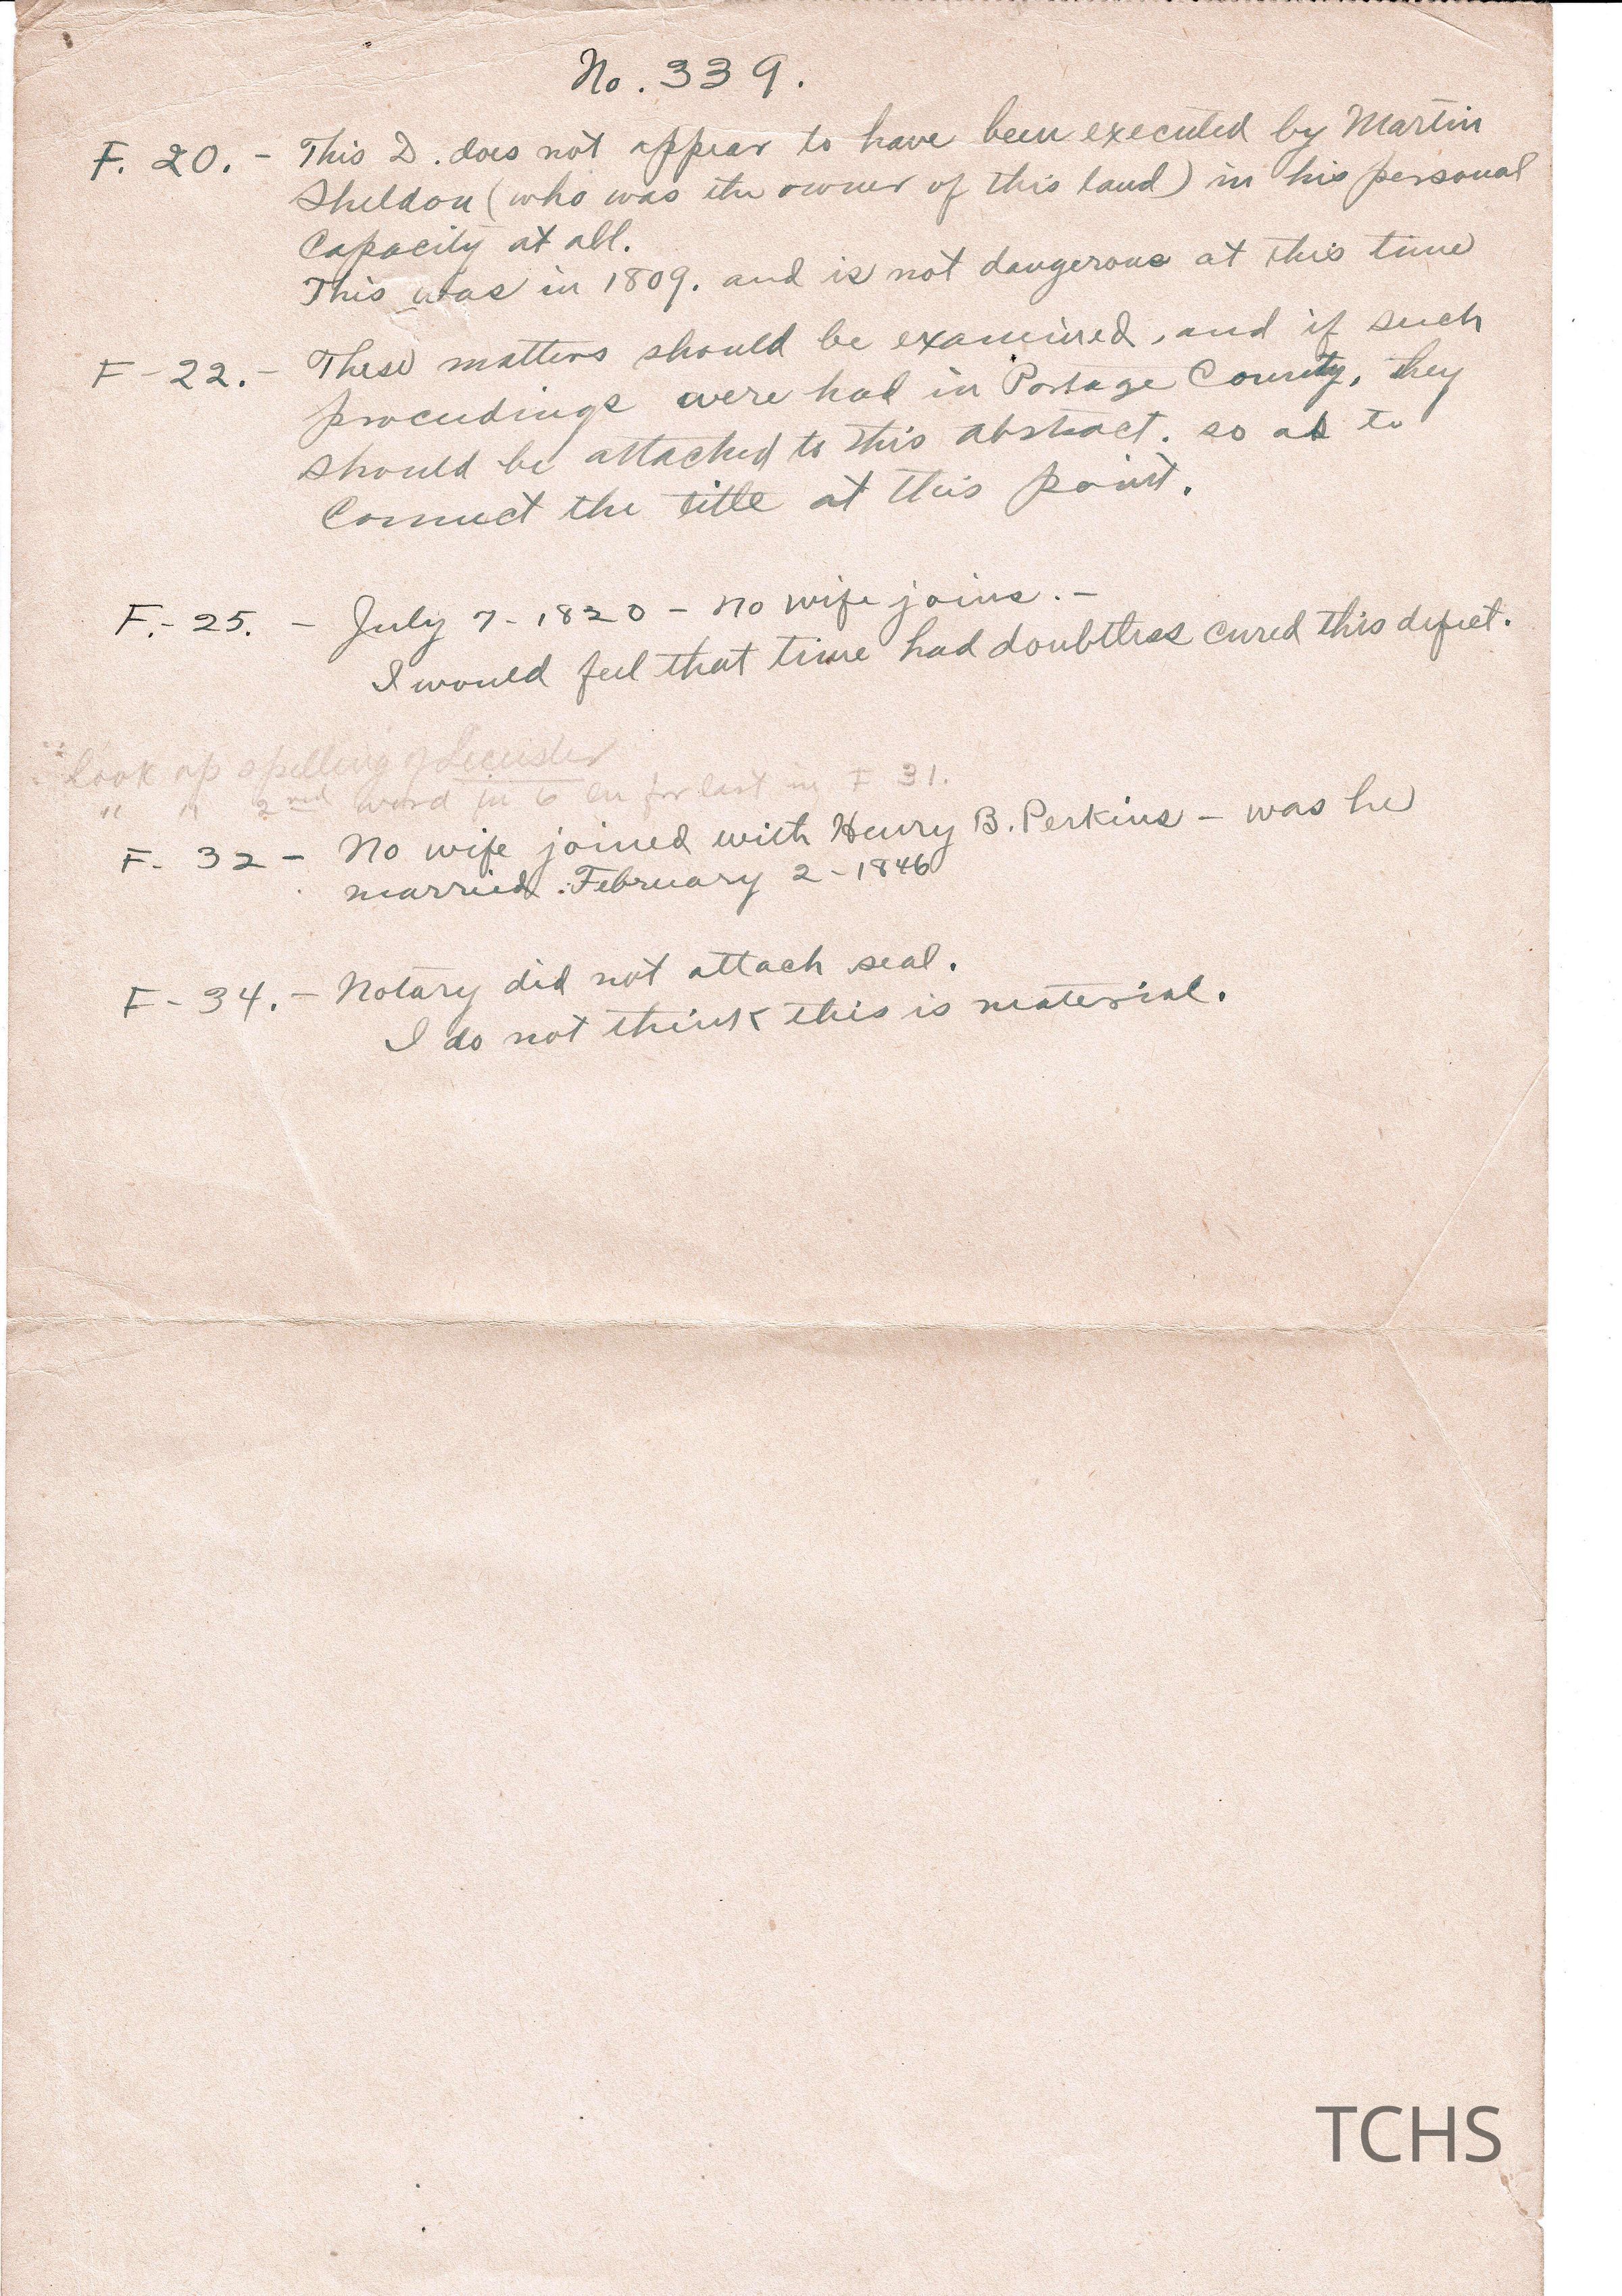 No. 339.
F. 20. - This D. does not appear to have been executed by Martin
Sheldon (who was the owner of this land) in his personal
Capacity at all.
This was in 1809. and is not dangerous at this time
F - 22. - These matters should be examined, and if such
proceedings were had in Portage County, they
should be attached to this abstract. so as to
Connect the title at this point.
F. - 25. - July 7 - 1820 - no wife joins. -
I would feel that time had doubtless cured this defect.
Look up spelling of
" " 2nd word in 6 from last in F 31.
F - 32 - No wife joined with Henry B. Perkins - was he
married. February 2 - 1846
F - 34. - Notary did not attach seal.
I do not think this is material.
TCHS